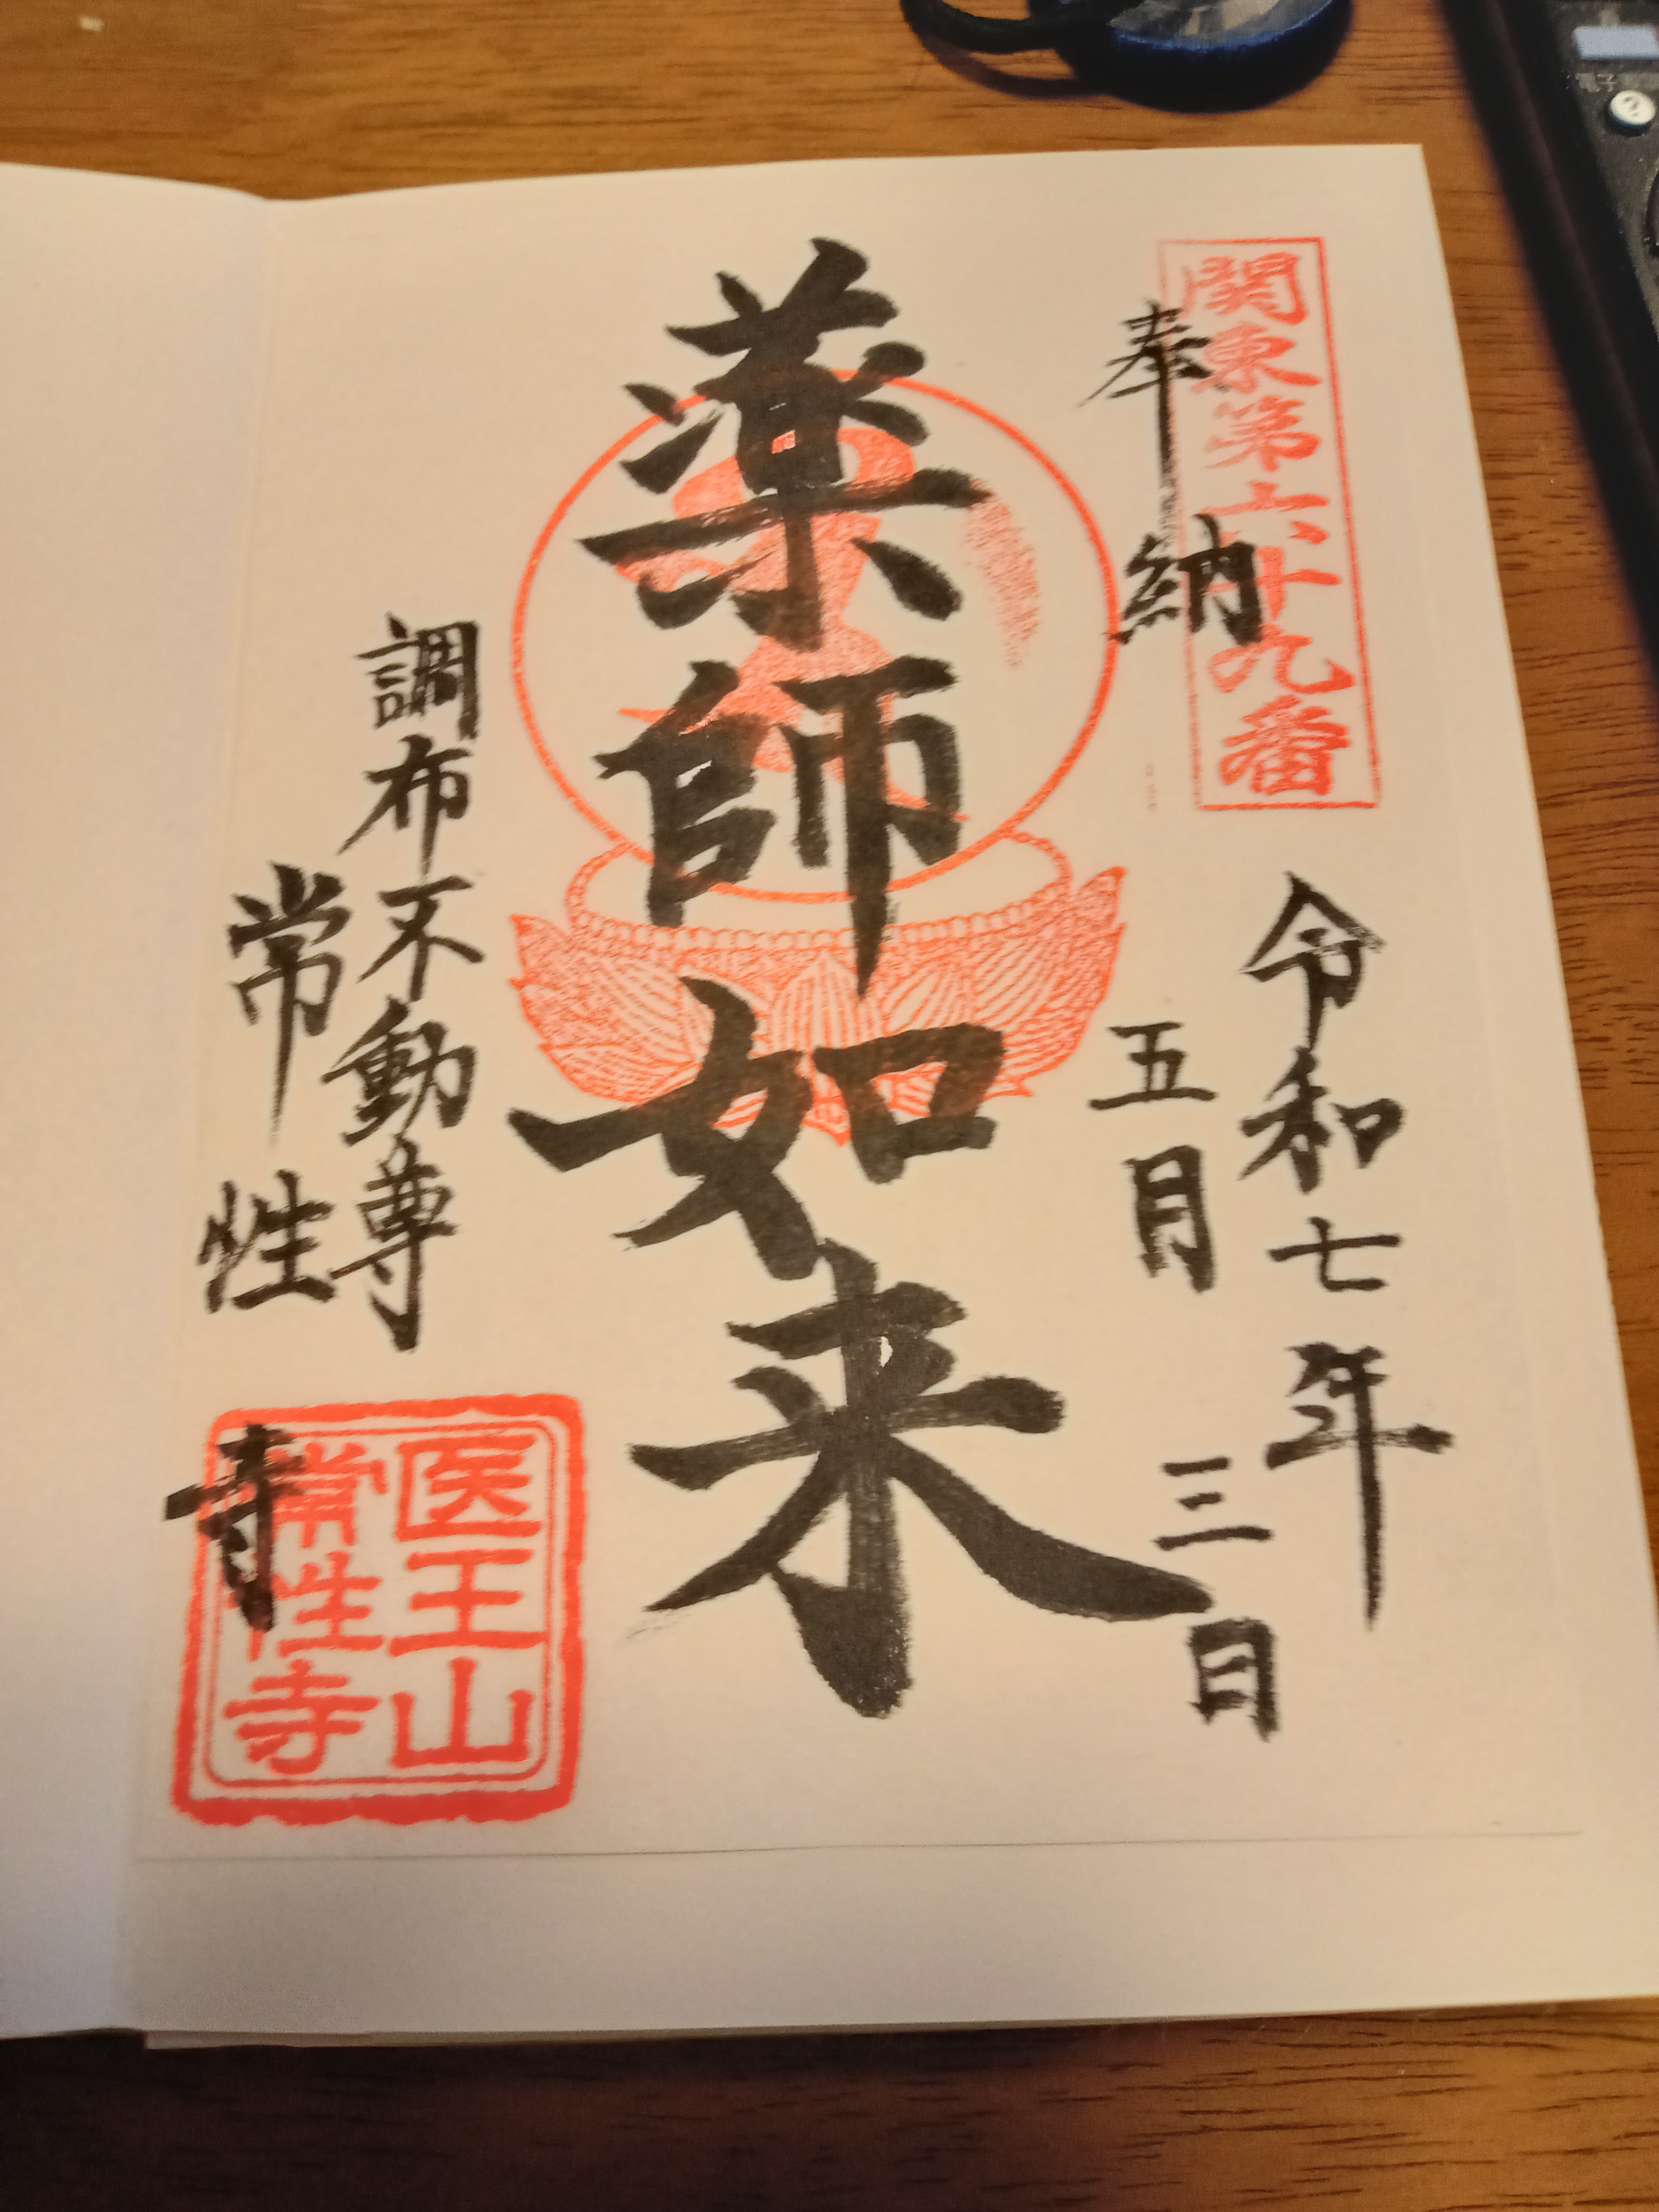 関東第六十九番
奉納
令和七年
五月三日
薬師如来
調布不動尊
常性寺
医王山
常性寺
電子